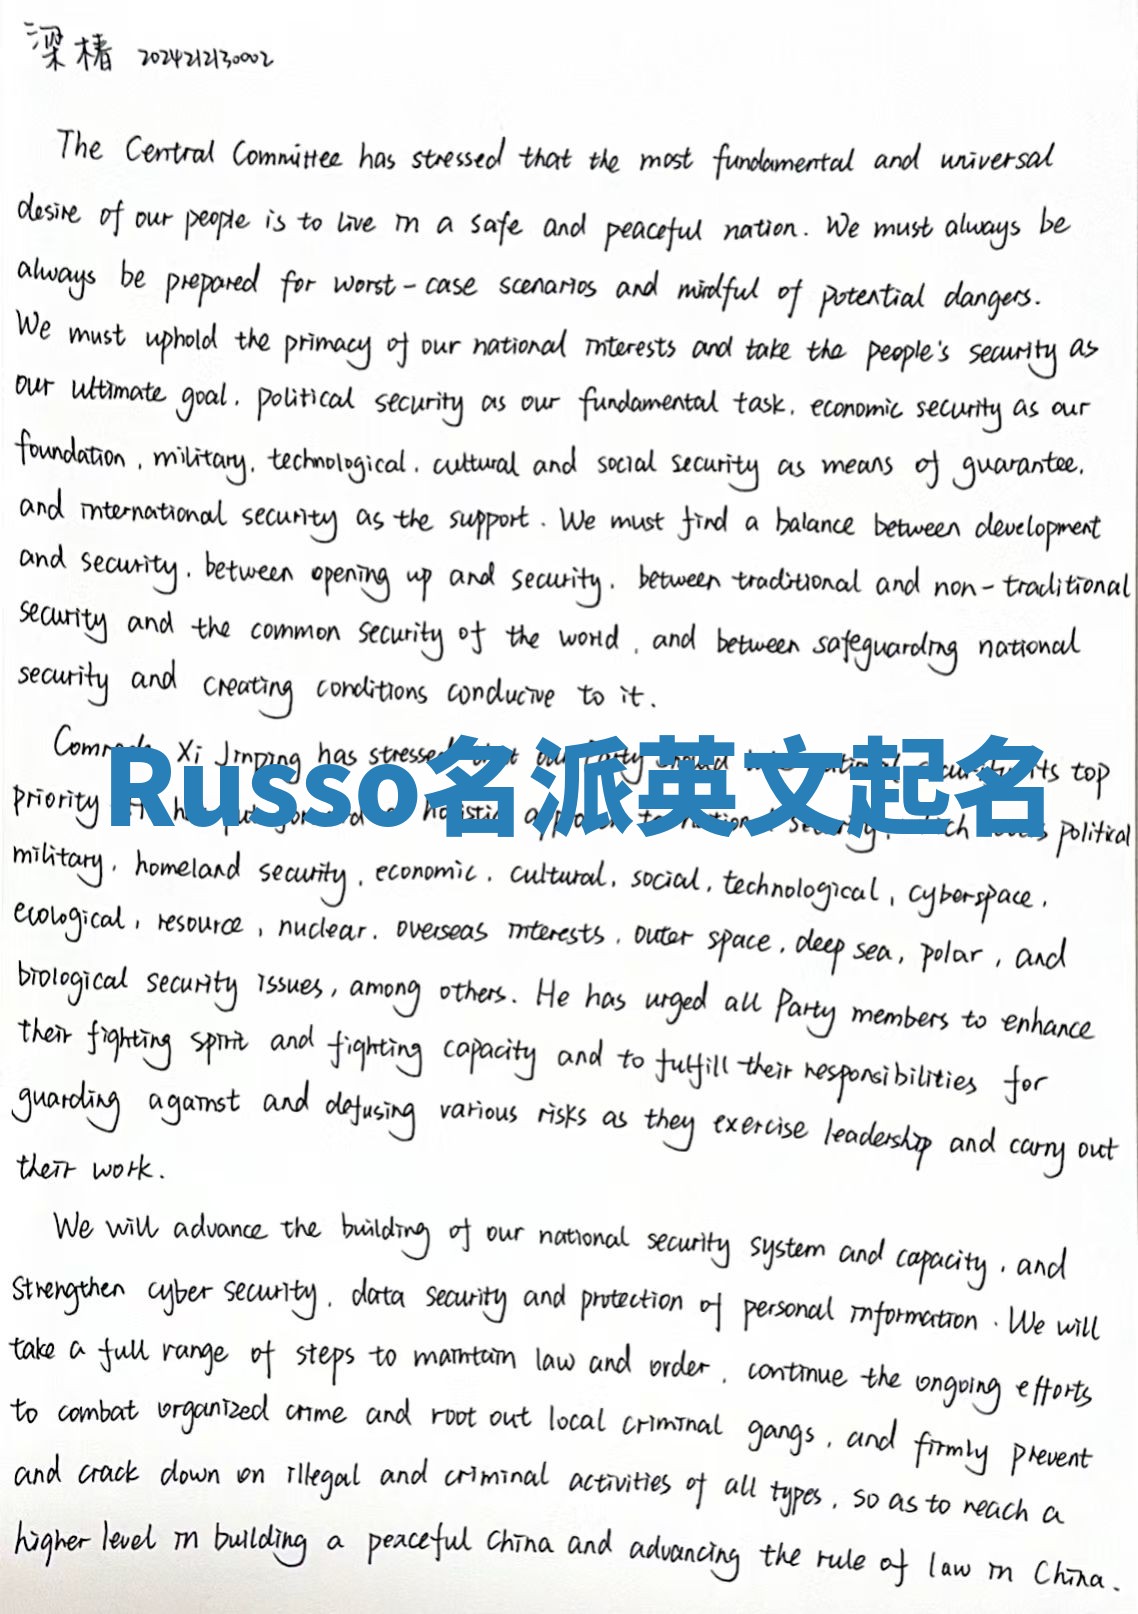 梁椿 2024212130002
The Central Committee has stressed that the most fundamental and universal
desire of our people is to live in a safe and peaceful nation. We must always be
always be prepared for worst-case scenarios and mindful of potential dangers.
We must uphold the primacy of our national interests and take the people's security as
our ultimate goal, political security as our fundamental task, economic security as our
foundation, military, technological, cultural and social security as means of guarantee,
and international security as the support. We must find a balance between development
and security, between opening up and security, between traditional and non-traditional
security and the common security of the world, and between safeguarding national
security and creating conditions conducive to it.
Xi Jinping has stressed its top
Russo名派英文起名
priority political
military, homeland security, economic, cultural, social, technological, cyberspace,
ecological, resource, nuclear, overseas interests, outer space, deep sea, polar, and
biological security issues, among others. He has urged all Party members to enhance
their fighting spirit and fighting capacity and to fulfill their responsibilities for
guarding against and defusing various risks as they exercise leadership and carry out
their work.
We will advance the building of our national security system and capacity, and
strengthen cyber security, data security and protection of personal information. We will
take a full range of steps to maintain law and order, continue the ongoing efforts
to combat organized crime and root out local criminal gangs, and firmly prevent
and crack down on illegal and criminal activities of all types, so as to reach a
higher level in building a peaceful China and advancing the rule of law in China.